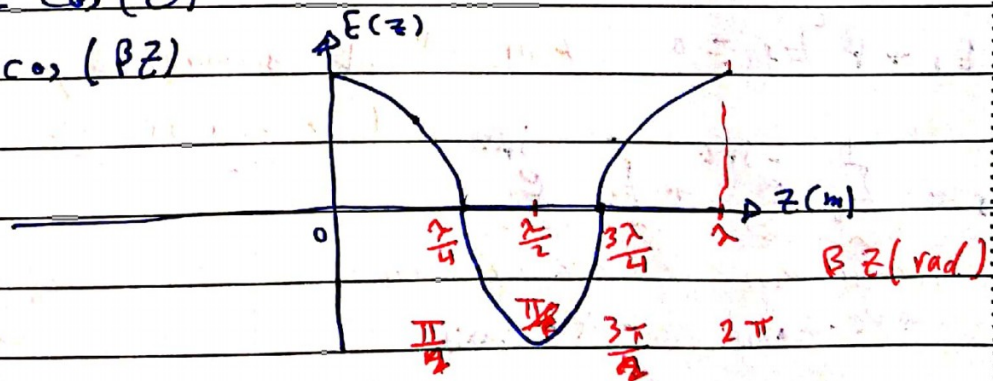 cos (
E(z)
cos (βz)
z(m)
0
λ/4 λ/2 3λ/4 λ
βz(rad)
π/2 π 3π/2 2π